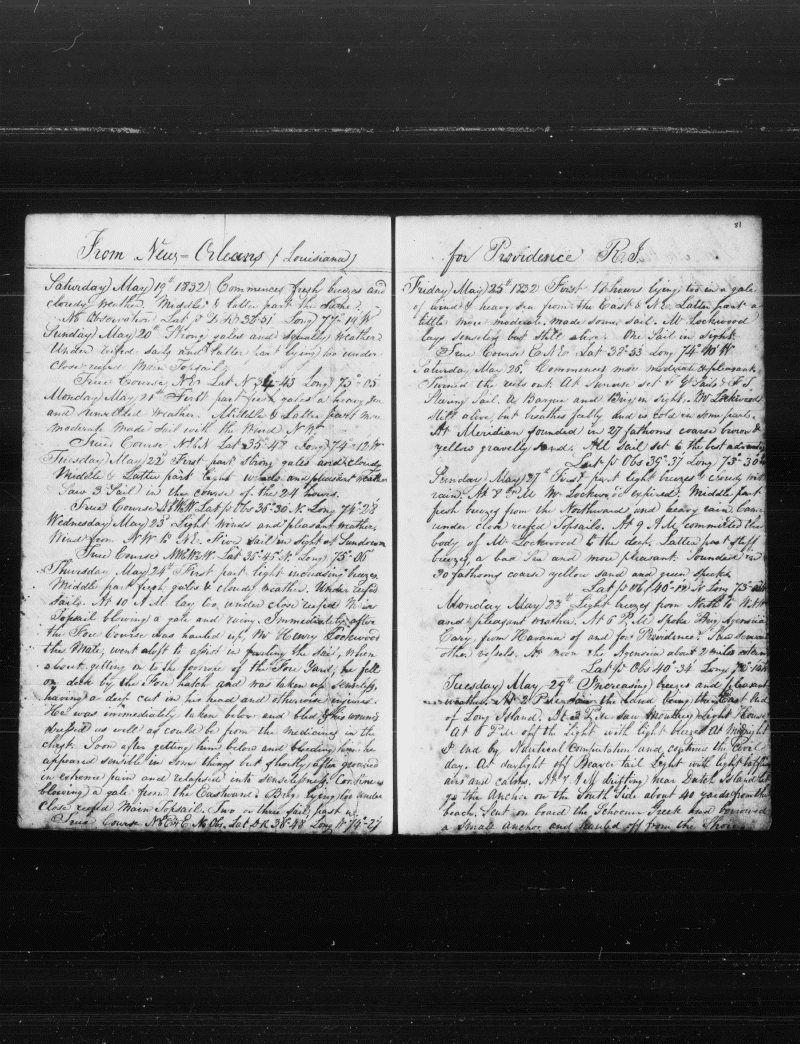 From New-Orleans (Louisiana)
Saturday May 19th 1832 Commences fresh breezes and
cloudy weather. Middle & latter part the same.
No Observation Lat Long 77°-19 W
Sunday May 20th Strong gales and squally weather
Under reefed sails and latter part lying to under
close reefed Main Topsail
True Course Lat N 34-43 Long 75°-05
Monday May 21st First part gales a heavy Sea
and unsettled weather. Middle & Latter part more
moderate Made Sail with the Wind
True Course Lat 35-48 Long 74-12 W
Tuesday May 22d First part Strong gales and cloudy
Middle & Latter part light winds and pleasant weather
Saw 3 Sail in the course of the 24 hours.
True Course Lat p Obs 35-30 N. Long 74-28
Wednesday May 23d Light Winds and pleasant weather
Wind from N.W to N.E. Five Sail in sight at Sundown
True Course Lat 35-45 N. Long 75-06
Thursday May 24th First part light increasing breezes
Middle part fresh gales & cloudy weather. Under reefed
sails. At 10 A M lay too under close reefed Main
Topsail blowing a gale and rainy. Immediately after
the Fore Course was hauled up, Mr Henry Lockwood
the Mate, went aloft to assist in furling the sail, When
about getting on to the footrope of the Fore Yard, he fell
on deck by the Fore hatch and was taken up senseless,
having a deep cut in his head and otherwise injured.
He was immediately taken below and bled & his wounds
dressed as well as could be from the medicines in the
chest. Soon after getting him below and bleeding him he
appeared sensible in some things but shortly after groaned
in extreme pain and relapsed into senselessness. Continues
blowing a gale from the Eastward. Brig lying too under
close reefed Main Topsail. Two or three sail past us.
True Course No Obs. Lat D R 38-48 Long 74-27
81
for Providence R.I.
Friday May 25th 1832 First hours lying too in a gale
of wind & heavy sea from the East & N.E. Latter part a
little more moderate made some sail. Mr Lockwood
lays senseless but still alive. One Sail in sight.
True Course E.N.E Lat 39-53 Long 74°40 W
Saturday May 26. Commences more moderate & pleasant
Turned the reefs out. At Sunrise set
Stering Sail. A Barque and Brig in sight. Mr Lockwood
still alive, but breathes badly and is cold in some parts.
At Meridian sounded in 27 fathoms coarse brown &
yellow gravelly sand. All sail set to the best advantage
Lat p Obs 39°-37 Long 73°-30
Sunday May 27th First part light breezes & cloudy with
rain. At 8 P.M Mr Lockwood expired. Middle part
fresh breezes from the Northward and heavy rain. Came
under close reefed Topsails. At 9 A M committed the
body of Mr Lockwood to the deep. Latter part stiff
breezes, a bad Sea and more pleasant. Sounded in
30 fathoms coarse yellow sand and green specks
Lat p Obs 40°-12 N Long 73°
Monday May 28th Light breezes from North to
and pleasant weather. At 5 P.M Spoke Brig Agenoria
Cary, from Havana of and for Providence. Saw several
other vessels. At noon the Agenoria about 2 miles astern
Lat p Obs 40°34 Long
Tuesday May 29th Increasing breezes and pleasant
weather. At 2 P.M saw the Land being the East End
of Long Island. At 3 P.M saw Montaug Light House
At 6 P.M off the Light with light breezes At Midnight
I end by Nautical Computation and continue the Civil
day. At daylight off Beaver tail Light with light baffling
airs and calms. At 7 A M drifting near Dutch Island let
go the Anchor on the South Side about 40 yards from the
beach. Sent on board the Schooner Greek and borrowed
a Small Anchor and hauled off from the Shore